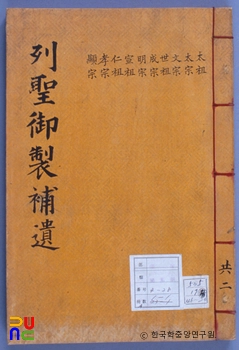 列聖御製補遺
太祖
太宗
文宗
世祖
成宗
明宗
宣祖
仁祖
孝宗
顯宗
共二
© 한국학중앙연구원